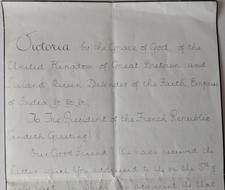 Victoria by the Grace of God, of the
United Kingdom of Great Britain and
Ireland Queen, Defender of the Faith, Empress
of India, &c. &c. &c.
To The President of the French Republic
Sendeth Greeting!
Our Good Friend! We have received the
Letter which You addressed to Us on the